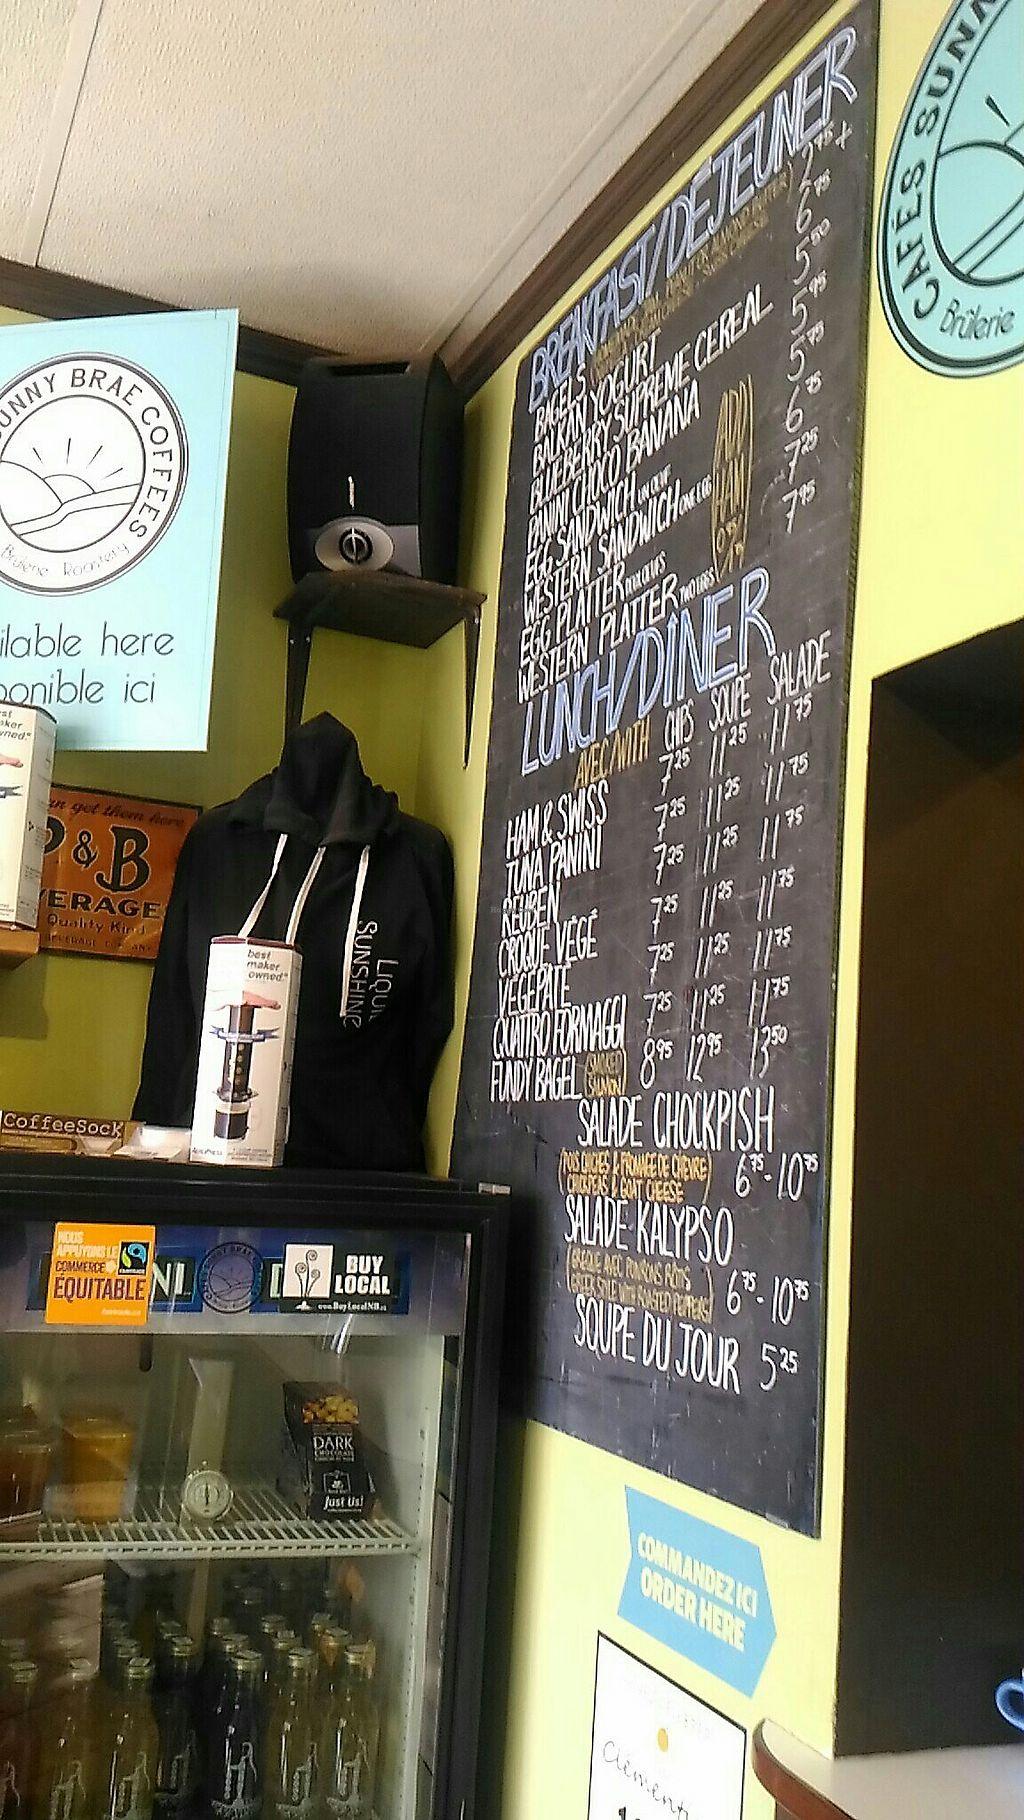 CAFÉS SUNN
Brûlerie
SUNNY BRAE COFFEES
Brûlerie Roastery
ilable here
ponible ici
BREAKFAST/DÉJEUNER
BAGELS 2.75 +
BALKAN YOGURT 6.75
BLUEBERRY SUPREME CEREAL 5.50
PANINI CHOCO BANANA 5.95
EGG SANDWICH 5.75
WESTERN SANDWICH 6.75
EGG PLATTER 7.25
WESTERN PLATTER TWO EGGS 7.95
ADD
HAM
LUNCH/DÎNER
AVEC/WITH CHIPS SOUPE SALADE
HAM & SWISS 7.25 11.25 11.75
TUNA PANINI 7.25 11.25 11.75
REUBEN 7.25 11.25 11.75
CROQUE VÉGÉ 7.25 11.25 11.75
VÉGÉPÂTÉ 7.25 11.25 11.75
QUATTRO FORMAGGI 7.25 11.25 11.75
FUNDY BAGEL (SMOKED SALMON) 8.95 12.95 13.50
SALADE CHOCKPISH
(POIS CHICHES & FROMAGE DE CHÈVRE)
CHICKPEAS & GOAT CHEESE 6.75 - 10.75
SALADE KALYPSO
(GRECQUE AVEC POIVRONS RÔTIS
GREEK STYLE WITH ROASTED PEPPERS) 6.75 - 10.75
SOUPE DU JOUR 5.25
an get them here
P & B
VERAGE
Quality Kind
LIQUID
SUNSHINE
best
maker
owned."
AEROPRESS
CoffeeSock
NOUS
APPUYONS LE
COMMERCE
ÉQUITABLE
BUY
LOCAL
www.BuyLocalNB.ca
DARK
CHOCOLATE
Just Us!
COMMANDEZ ICI
ORDER HERE
Clémenti